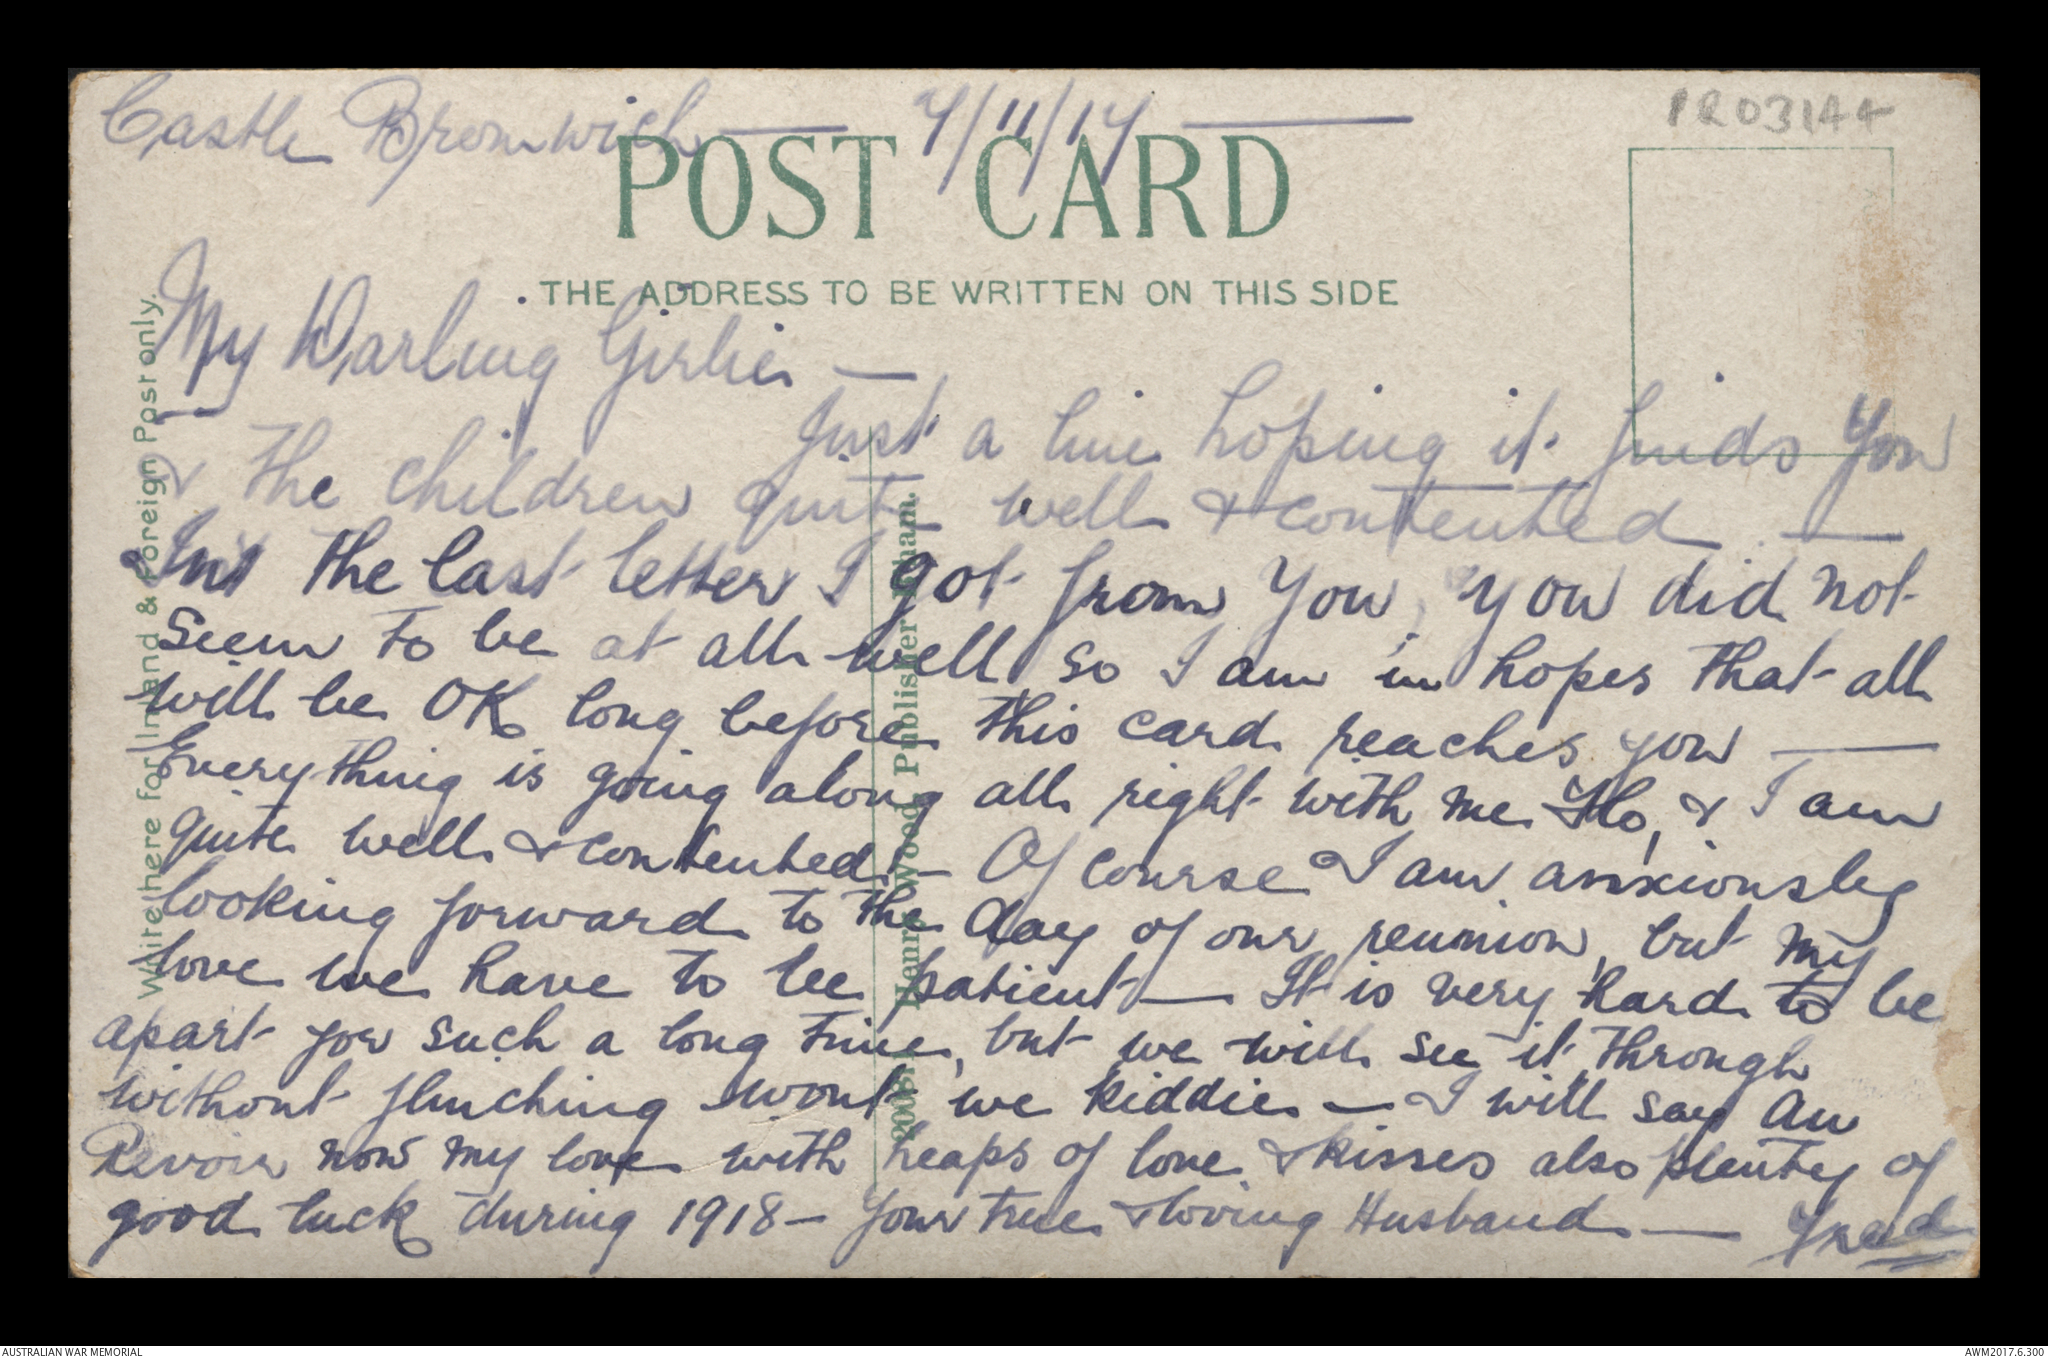 Castle Bromwich — 7/11/17 —
PR03144
POST CARD
THE ADDRESS TO BE WRITTEN ON THIS SIDE
My Darling Girlie —
Just a line hoping it finds you
& the children quite well & contented. —
In the last letter I got from you, you did not
seem to be at all well so I am in hopes that all
will be OK long before this card reaches you —
Everything is going along all right with me Flo, & I am
quite well & contented — Of course I am anxiously
looking forward to the day of our reunion, but my
love we have to be patient — It is very hard to be
apart for such a long time, but we will see it through
without flinching wont we kiddie — I will say Au
Revoir now my love with heaps of love & kisses also plenty of
good luck during 1918 — Your true & loving Husband — Fred
Write here for Inland & Foreign Post only.
Henry Wood, Publisher B'ham.
AUSTRALIAN WAR MEMORIAL
AWM2017.6.300